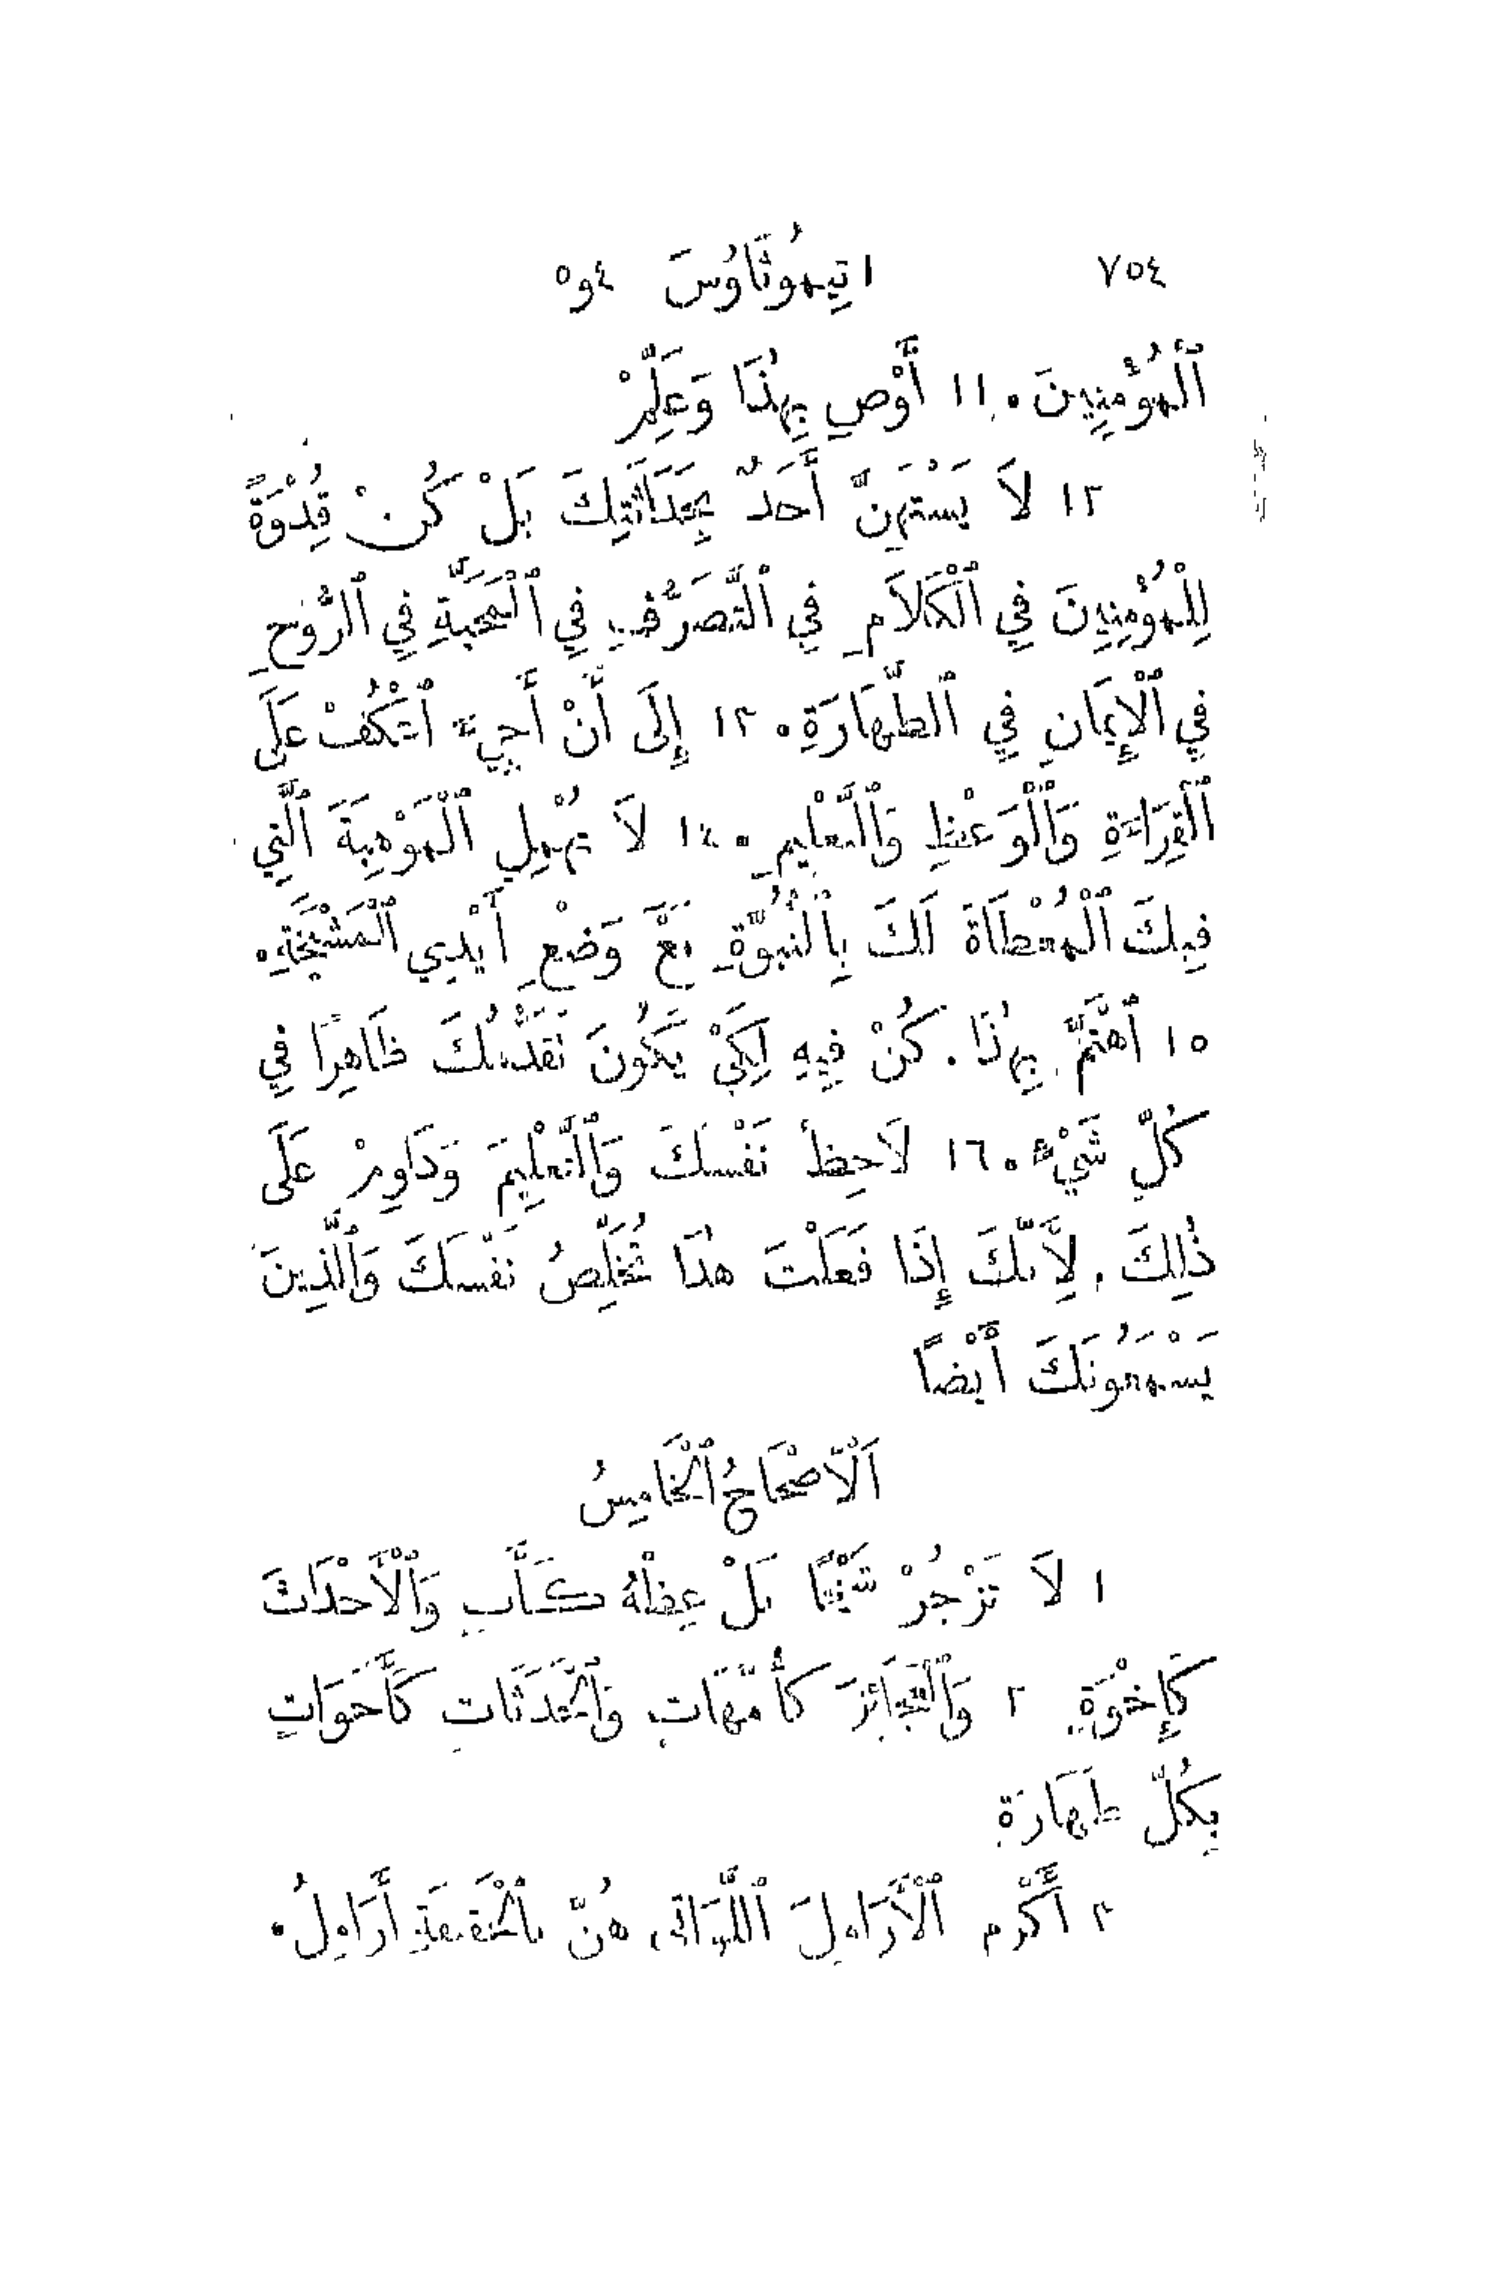 ٧٥٤ ١ تِيمُوثَاوُسَ ٤ و ٥
ٱلْمُؤْمِنِينَ. ١١ أَوْصِ بِهٰذَا وَعَلِّمْ
١٢ لَا يَسْتَهِنْ أَحَدٌ بِحَدَاثَتِكَ بَلْ كُنْ قُِدْوَةً
لِلْمُؤْمِنِينَ فِي ٱلْكَلَامِ فِي ٱلتَّصَرُّفِ فِي ٱلْمَحَبَّةِ فِي ٱلرُّوحِ
فِي ٱلْإِيمَانِ فِي ٱلطَّهَارَةِ. ١٣ إِلَى أَنْ أَجِيءَ ٱعْكُفْ عَلَى
ٱلْقِرَاءَةِ وَٱلْوَعْظِ وَٱلتَّعْلِيمِ. ١٤ لَا تُهْمِلِ ٱلْمَوْهِبَةَ ٱلَّتِي
فِيكَ ٱلْمُعْطَاةَ لَكَ بِٱلنُّبُوَّةِ مَعَ وَضْعِ أَيْدِي ٱلْمَشْيَخَةِ.
١٥ ٱهْتَمَّ بِهٰذَا. كُنْ فِيهِ لِكَيْ يَكُونَ تَقَدُّمُكَ ظَاهِرًا فِي
كُلِّ شَيْءٍ. ١٦ لَاحِظْ نَفْسَكَ وَٱلتَّعْلِيمَ وَدَاوِمْ عَلَى
ذٰلِكَ. لِأَنَّكَ إِذَا فَعَلْتَ هٰذَا تُخَلِّصُ نَفْسَكَ وَٱلَّذِينَ
يَسْمَعُونَكَ أَيْضًا
اَلْأَصْحَاحُ ٱلْخَامِسُ
١ لَا تَزْجُرْ شَيْخًا بَلْ عِظْهُ كَأَبٍ وَٱلْأَحْدَاثَ
كَإِخْوَةٍ ٢ وَٱلْعَجَائِزَ كَأُمَّهَاتٍ وَٱلْحَدَثَاتِ كَأَخَوَاتٍ
بِكُلِّ طَهَارَةٍ
٣ أَكْرِمِ ٱلْأَرَامِلَ ٱللَّوَاتِي هُنَّ بِٱلْحَقِيقَةِ أَرَامِلُ.